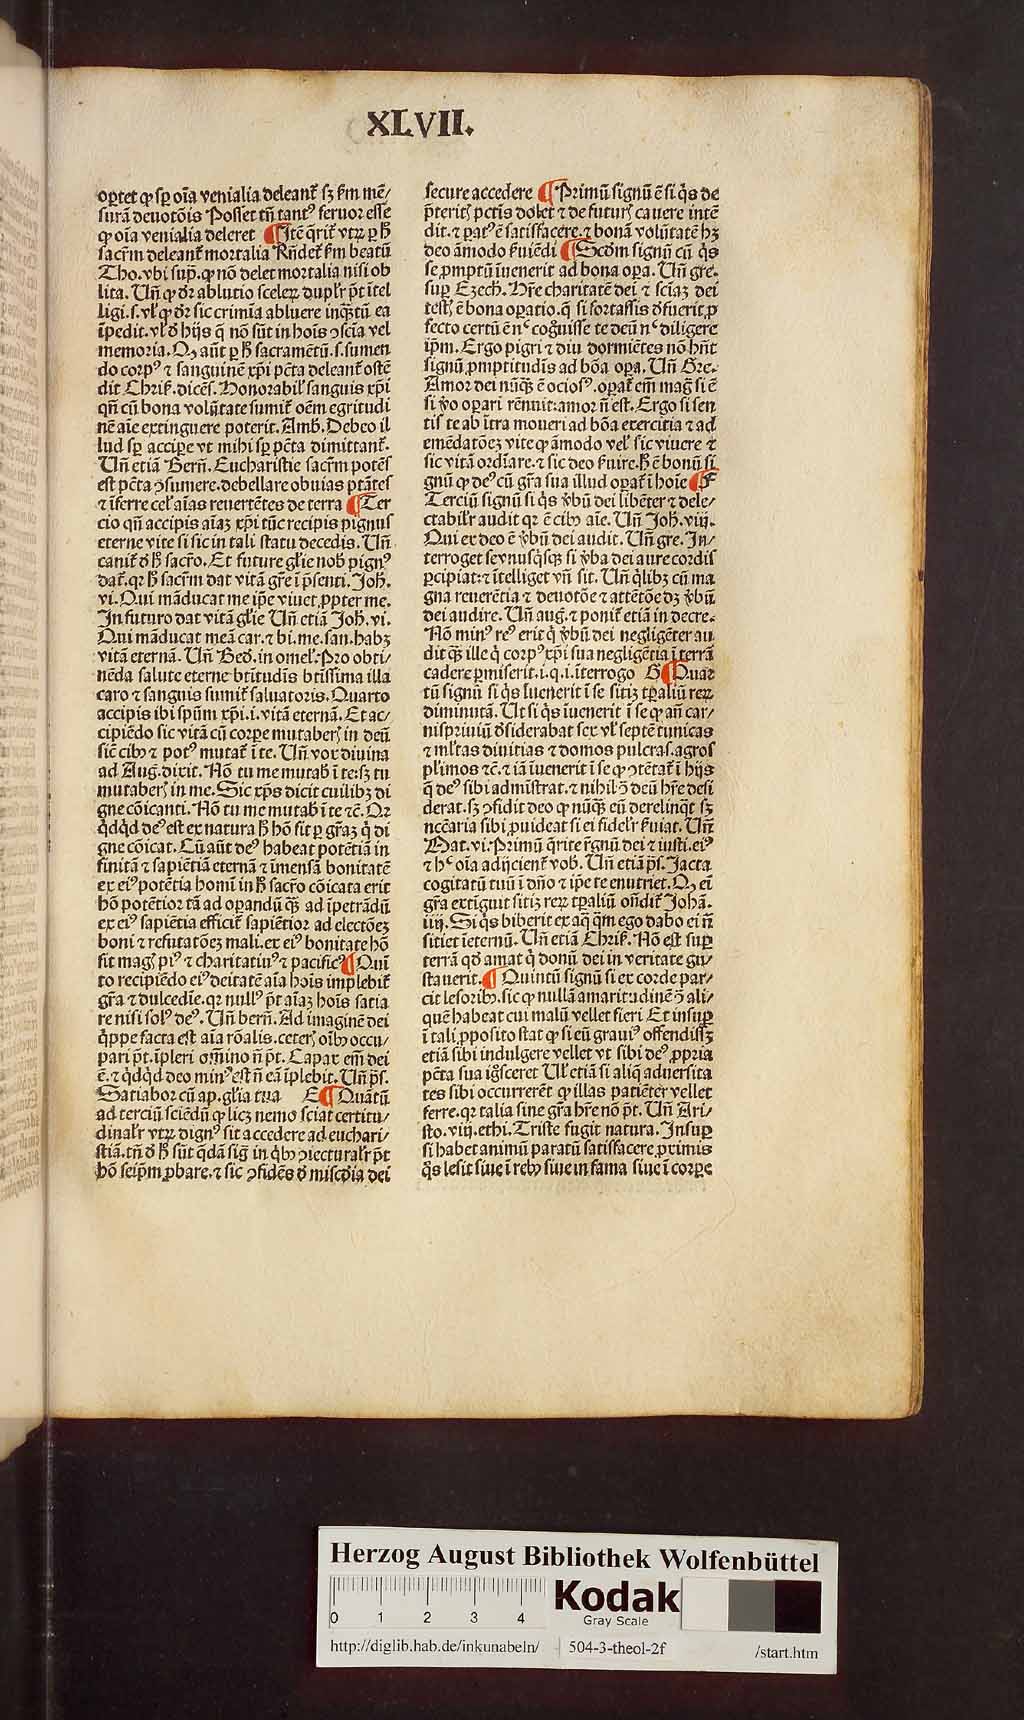 XLVII.
oꝑtet ꝙ sꝑ oīa venialia deleant᷑ sꝫ ẜm mē/
surā deuotōis Posset tn̄ tantꝰ feruor esse
ꝙ oīa venialia deleret ¶ Itē q̄rit᷑ vtꝝ ꝑ hͦ
sacr̄m deleant᷑ mortalia Rn̄det᷑ ẜm beatū
Tho. vbi supͣ. ꝙ nō delet mortalia nisi ob
lita. Vn̄ ꝙ dr̄ ablutio sceleꝝ duplr̄ pt̄ ītel
ligi. s. vl̓ ꝙ dr̄ sic crimīa abluere inqͣtū ea
īpedit. vl̓ ꝺ hijs q̄ nō sūt in hoīs ꝯscīa vel
memoria. Qꝫ aūt ꝑ hͦ sacramētū. s. sumen
do corpꝰ ⁊ sanguinē xp̄i pctā deleant᷑ ostē
dit Chriẜ. dicēs. Honorabil̓ sanguis xp̄i
qn̄ cū bona volūtate sumit᷑ oēm egritudi
nē aīe extinguere poterit. Amb. Debeo il
lud sꝑ accipe vt mihi sꝑ pctā dimittant᷑.
Vn̄ etiā Bern̄. Eucharistie sacr̄m potēs
est pctā ꝯsumere. debellare obuias ptātes
⁊ īferre cel̓ aīas reuertētes de terra ¶ Ter
cio qn̄ accipis aīaꝫ xp̄i tūc recipis pignus
eterne vite si sic in tali statu decedis. Vn̄
canit᷑ ꝺ hͦ sacro. Et future glīe nob̄ pignꝰ
dat᷑. qꝛ hͦ sacr̄m dat vitā grē ī pn̄senti. Joh̄.
vi. Qui māducat me ip̄e viuet ꝓpter me.
In futuro dat vitā glīe Vn̄ etiā Joh̄. vi.
Qui māducat meā car. ⁊ bi. me. san. habꝫ
vitā eternā. Vn̄ Bed. in omel̓. Pro obti/
nēda salute eterne btitudīs btissima illa
caro ⁊ sanguis sumit᷑ saluatoris. Quarto
accipis ibi spūm xp̄i. i. vitā eternā. Et ac/
cipiēdo sic vitā cū corpe mutaberꝭ in deū
siē cibꝰ ⁊ potꝰ mutat᷑ ī te. Vn̄ vox diuina
ad Aug. dixit. Nō tu me mutab̄ ī te: sꝫ tu
mutaberꝭ in me. Sic xp̄s dicit cuilibꝫ di
gne cōicanti. Nō tu me mutab̄ ī te ⁊c̄. Qꝛ
qͥdqͥd deꝰ est ex natura hͦ hō fit ꝑ grāꝫ qͥ di
gne cōicat. Cū aūt deꝰ habeat potētiā in
finitā ⁊ sapiētiā eternā ⁊ imensā bonitatē
ex eiꝰ potētia homī in hͦ sacro cōicata erit
hō potētior tā ad opandū qͣꝫ ad īpetrādū
ex eiꝰ sapiētia efficit᷑ sapiētior ad electōeꝫ
boni ⁊ refutatōeꝫ mali. ex eiꝰ bonitate hō
fit magꝭ piꝰ ⁊ charitatiuꝰ ⁊ pacificꝰ ¶ Quī
to recipiēdo eiꝰ deitatē aīa hoīs implebit᷑
grā ⁊ dulcedīe. qꝛ nullꝰ pt̄ aīaꝫ hoīs satia
re nisi solꝰ deꝰ. Vn̄ bern̄. Ad imaginē dei
qͥppe facta est aīa rōalis. ceterꝭ oībꝰ occu/
pari pt̄. īpleri om̄ino n̄ pt̄. Capax em̄ dei
ē. ⁊ qͥdqͥd deo minꝰ est n̄ eā īplebit. Vn̄ ps̄.
Satiabor cū ap. glīa tua E ¶ Quātū
ad terciū sciēdū ꝙ licꝫ nemo sciat certitu/
dinalr̄ vtꝝ dignꝰ sit accedere ad euchari/
stiā. tn̄ ꝺ hͦ sūt qͥdā sig̈ in qͥbꝰ ꝯiecturalr̄ pt̄
hō seipm̄ ꝓbare. ⁊ sic ꝯfidēs ꝺ misc̄dia dei
secure accedere ¶ Primū signū ē si qͥs de
pteritꝭ pctīs dolet ⁊ de futurꝭ cauere intē
dit. ⁊ patꝰ ē satisfacere. ⁊ bonā volūtatē hꝫ
deo āmodo ẜuiēdi ¶ Scd̄m signū cū qͥs
se ꝓmptū īuenerit ad bona oꝑa. Vn̄ gre.
suꝑ Ezech̄. Hr̄e charitatē dei ⁊ sciaꝫ dei
testꝭ ē bona oꝑatio. q̄ si fortassis ꝺfuerit ꝓ
fecto certū ē nͨ cognouisse te deū nͨ diligere
ip̄m. Ergo pigri ⁊ diu dormiētes nō hn̄t
signū ꝓmptitudīs ad bōa oꝑa. Vn̄ Gre.
Amor dei nūqͣꝫ ē ociosꝰ. oꝑat᷑ em̄ magͣ si ē
si ṽo oꝑari rēnuit: amor n̄ est. Ergo si sen
tis te ab ītra moueri ad bōa exercitia ⁊ ad
emēdatōeꝫ vite ꝙ āmodo velꝭ sic viuere ⁊
sic vitā ordīare. ⁊ sic deo ẜuire. hͦ ē bonū si
gnū ꝙ deꝰ cū grā sua illud oꝑat᷑ ī hoīe ¶ F
Terciū signū si qͥs ṽbū dei libēter ⁊ dele/
ctabilr̄ audit qꝛ ē cibꝰ aīe. Vn̄ Joh̄. viij.
Qui ex deo ē ṽbū dei audit. Vn̄ gre. In/
terroget se vnusqͥsqꝫ si ṽba dei aure cordis
ꝑcipiat: ⁊ ītelliget vn̄ sit. Vn̄ qͥlibꝫ cū ma
gna reuerētia ⁊ deuotōe ⁊ attētōe dꝫ ṽbū
dei audire. Vn̄ aug. ⁊ ponit᷑ etiā in decre.
Nō minꝰ reꝰ erit qͥ ṽbū dei negligēter au
dit qͣꝫ ille qͥ corpꝰ xp̄i sua negligētia ī terrā
cadere ꝑmiserit. i. q. i. īterrogo G ¶ Quar
tū signū si qͥs īuenerit ī se sitiꝫ tꝑaliū reꝝ
diminutā. Ut si qͥs īuenerit ī se ꝙ an̄ car/
nispriuiū ꝺsiderabat sex vl̓ septē tunicas
⁊ ml̓tas diuitias ⁊ domos pulcras. agros
pl̓imos ⁊c̄. ⁊ iā īuenerit ī se ꝙ ꝯtētat᷑ ī hijs
q̄ deꝰ sibi admīstrat. ⁊ nihil ꝯͣ deū hr̄e desi
derat. sꝫ ꝯfidit deo ꝙ nūqͣꝫ eū derelinqͥt sꝫ
ncc̄aria sibi ꝓuideat si ei fidelr̄ ẜuiat. Vn̄
Mat. vi. Primū q̄rite rgnū dei ⁊ iusti. eiꝰ
⁊ hͨ oīa adijcient᷑ vob̄. Vn̄ etiā ps̄. Jacta
cogitatū tuū ī dn̄o ⁊ ip̄e te enutriet. Qꝫ eī
grā extīguit sitiꝫ reꝝ tꝑaliū ondit᷑ Johā.
iiij. Si qͥs biberit ex aq̄ qͣm ego dabo ei n̄
sitiet ieternū. Vn̄ etiā Chriẜ. Nō est suꝑ
terrā qd̄ amat qͥ donū dei in veritate gu/
stauerit. ¶ Quintū signū si ex corde par/
cit lesoribꝰ. sic ꝙ nullā amaritudinē ꝯͣ ali/
quē habeat cui malū vellet fieri Et insuꝑ
ī tali ꝓposito stat ꝙ si eū grauiꝰ offendissꝫ
etiā sibi indulgere vellet vt sibi deꝰ ꝓpria
pctā sua ig̈sceret Vl̓ etiā si aliq̄ aduersita
tes sibi occurrerēt ꝙ illas patiēter vellet
ferre. qꝛ talia sine grā hr̄e nō pt̄. Vn̄ Ari/
sto. viij. ethi. Triste fugit natura. Insuꝑ
si habet animū paratū satisfacere ꝓximis
qͦs lesit siue ī rebꝰ siue in fama siue ī corꝑe
Herzog August Bibliothek Wolfenbüttel
0 1 2 3 4
Kodak
Gray Scale
http://diglib.hab.de/inkunabeln/ 504-3-theol-2f /start.htm